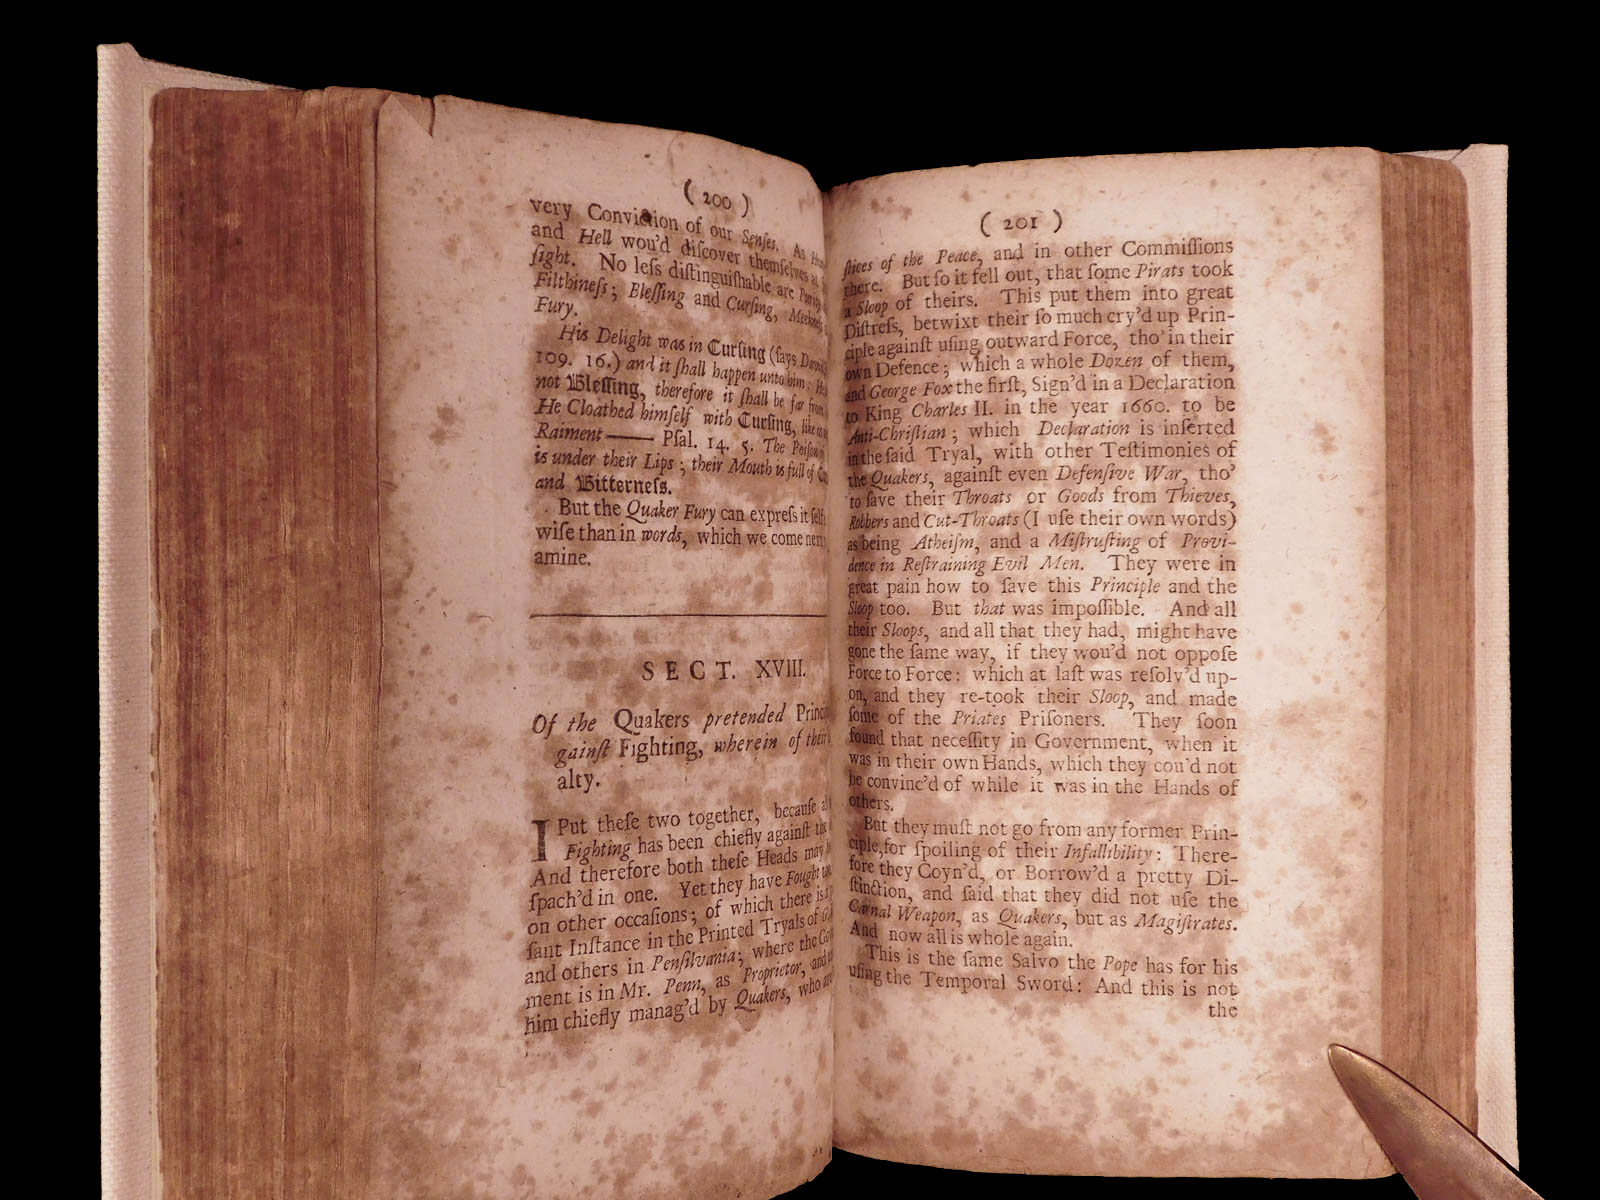 ( 200 )
very Conviction of our Senses. As
and Hell wou'd discover themselves at
sight. No less distinguishable are
Filthiness; Blessing and Cursing,
Fury.
His Delight was in Cursing (says David
109. 16.) and it shall happen unto him:
not Blessing, therefore it shall be far from
He Cloathed himself with Cursing, like as
Raiment —— Psal. 14. 5. The Poison
is under their Lips; their Mouth is full of
and Bitterness.
But the Quaker Fury can express it self
wise than in words, which we come next
amine.
SECT. XVIII.
Of the Quakers pretended
against Fighting, wherein of their
alty.
I Put these two together, because
Fighting has been chiefly against
And therefore both these Heads may
spach'd in one. Yet they have Fought
on other occasions; of which there is
sant Instance in the Printed Tryals of
and others in Pensilvania; where the
ment is in Mr. Penn, as Proprietor, and
him chiefly manag'd by Quakers, who
( 201 )
stices of the Peace, and in other Commissions
there. But so it fell out, that some Pirats took
a Sloop of theirs. This put them into great
Distress, betwixt their so much cry'd up Prin-
ciple against using outward Force, tho' in their
own Defence; which a whole Dozen of them,
and George Fox the first, Sign'd in a Declaration
to King Charles II. in the year 1660. to be
Anti-Christian; which Declaration is inserted
in the said Tryal, with other Testimonies of
the Quakers, against even Defensive War, tho'
to save their Throats or Goods from Thieves,
Robbers and Cut-Throats (I use their own words)
as being Atheism, and a Mistrusting of Provi-
dence in Restraining Evil Men. They were in
great pain how to save this Principle and the
Sloop too. But that was impossible. And all
their Sloops, and all that they had, might have
gone the same way, if they wou'd not oppose
Force to Force: which at last was resolv'd up-
on, and they re-took their Sloop, and made
some of the Priates Prisoners. They soon
found that necessity in Government, when it
was in their own Hands, which they cou'd not
be convinc'd of while it was in the Hands of
others.
But they must not go from any former Prin-
ciple, for spoiling of their Infallibility: There-
fore they Coyn'd, or Borrow'd a pretty Di-
stinction, and said that they did not use the
Carnal Weapon, as Quakers, but as Magistrates.
And now all is whole again.
This is the same Salvo the Pope has for his
using the Temporal Sword: And this is not
the